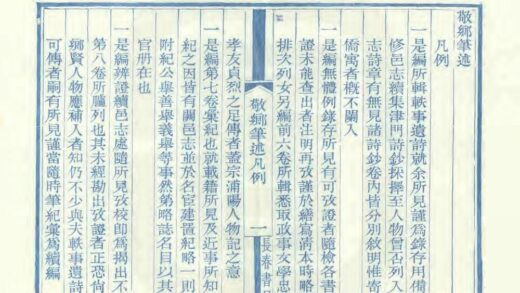 敬鄉筆述
凡例
一是編所輯軼事遺詩就余所見謹爲錄存用備
修邑志續集津門詩鈔採擇至人物曾否列入
志詩章有無見諸詩鈔卷內皆分別敘明惟寄
僑寓者槪不闌入
一是編無體例錄存所見有可攷證者隨檢各書
證未能查出者注明再攷謹於繕寫淸本時略
排次列女另編前六卷所輯悉取政事文學忠
孝友貞烈之足傳者蓋宗浦陽人物記之意
敬鄉筆述凡例
一
長春書
一是編第七卷彙紀也就載籍所見及近事所知
紀之因皆有關邑志並於名宦建置紀略一則
附紀公舉善舉義舉等事然第略誌名目以其
官册在也
一是編辨證續邑志處隨所見攷校卽爲揭出不
第八卷所臚列也其未經勘出攷證者正恐尙
鄉賢人物應補入者知仍不少與夫軼事遺詩
可傳者嗣有所見謹當隨時筆紀彙爲續編